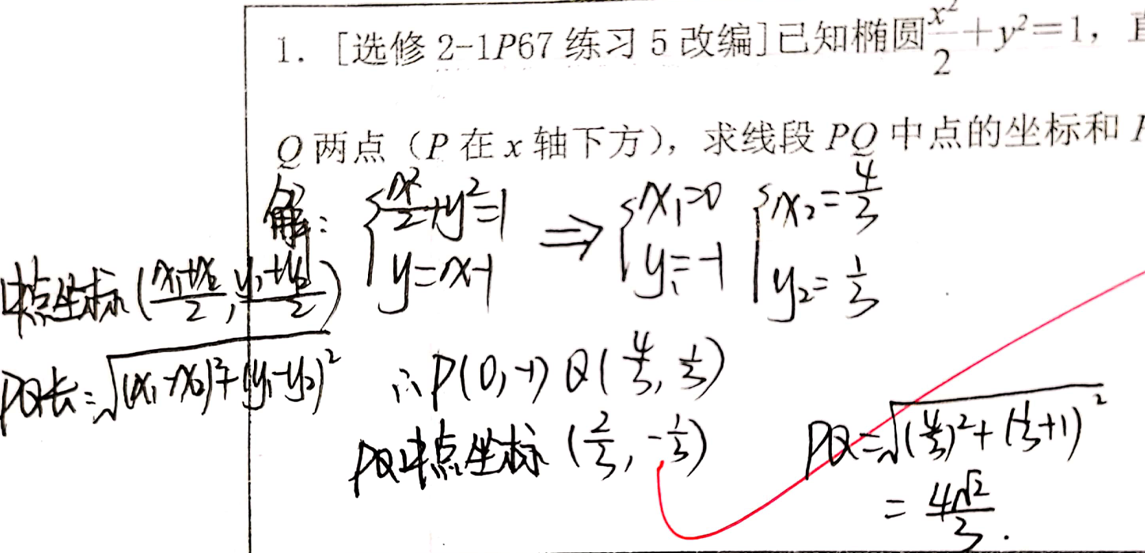 1. [选修 2-1P67 练习 5 改编]已知椭圆x²/2+y²=1，
Q 两点（P 在 x 轴下方），求线段 PQ 中点的坐标和
解： {x²/2+y²=1 y=x-1 ⇒ {x₁=0 y₁=-1 {x₂=4/3 y₂=1/3
中点坐标(x₁+x₂/2, y₁+y₂/2)
PQ长=√(x₁-x₂)²+(y₁-y₂)²
∴P(0,-1) Q(4/3, 1/3)
PQ中点坐标(2/3, -1/3)
PQ=√(4/3)²+(1/3+1)²
=4√2/3.